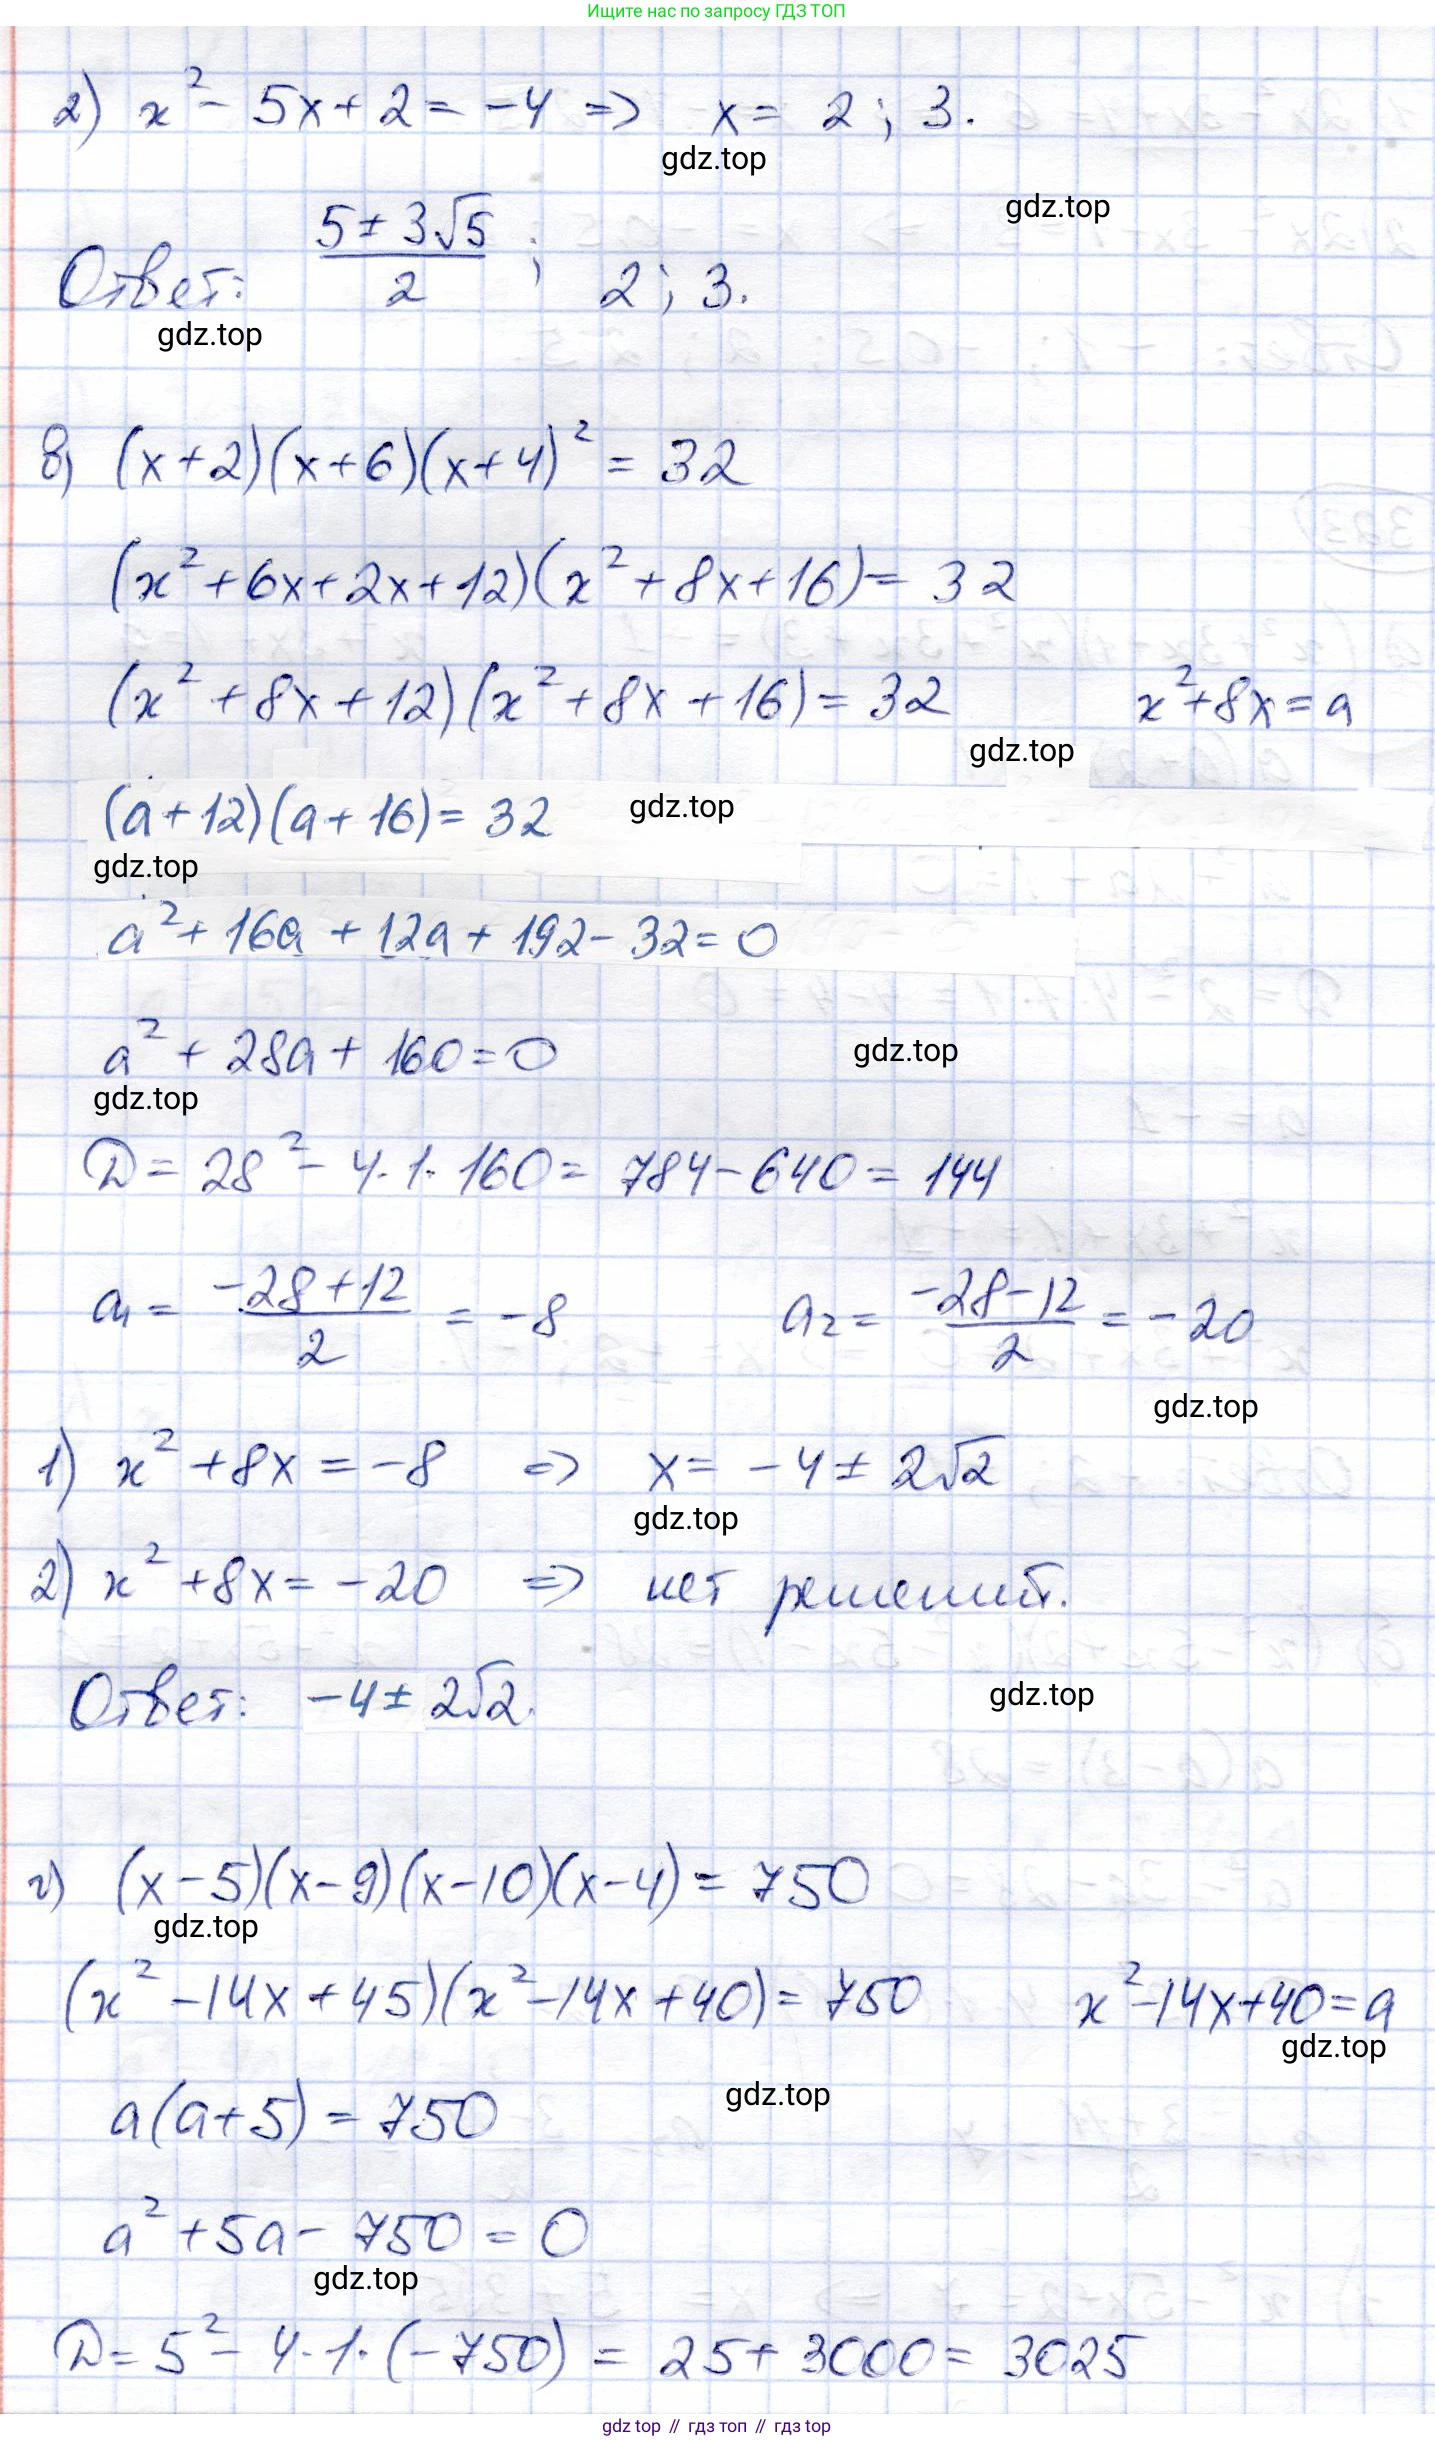 Ищите нас по запросу ГДЗ ТОП
2) x² - 5x + 2 = -4 => x = 2; 3.
gdz.top
gdz.top
Ответ: (5 ± 3√5)/2; 2; 3.
gdz.top
в) (x+2)(x+6)(x+4)² = 32
(x² + 6x + 2x + 12)(x² + 8x + 16) = 32
(x² + 8x + 12)(x² + 8x + 16) = 32 x² + 8x = a
gdz.top
(a + 12)(a + 16) = 32 gdz.top
gdz.top
a² + 16a + 12a + 192 - 32 = 0
a² + 28a + 160 = 0 gdz.top
gdz.top
D = 28² - 4·1·160 = 784 - 640 = 144
a₁ = (-28+12)/2 = -8 a₂ = (-28-12)/2 = -20
gdz.top
1) x² + 8x = -8 => x = -4 ± 2√2
gdz.top
2) x² + 8x = -20 => нет решений.
Ответ: -4 ± 2√2.
gdz.top
г) (x-5)(x-9)(x-10)(x-4) = 750
gdz.top
(x² - 14x + 45)(x² - 14x + 40) = 750 x² - 14x + 40 = a
gdz.top
a(a+5) = 750 gdz.top
a² + 5a - 750 = 0
gdz.top
D = 5² - 4·1·(-750) = 25 + 3000 = 3025
gdz top // гдз топ // gdz top